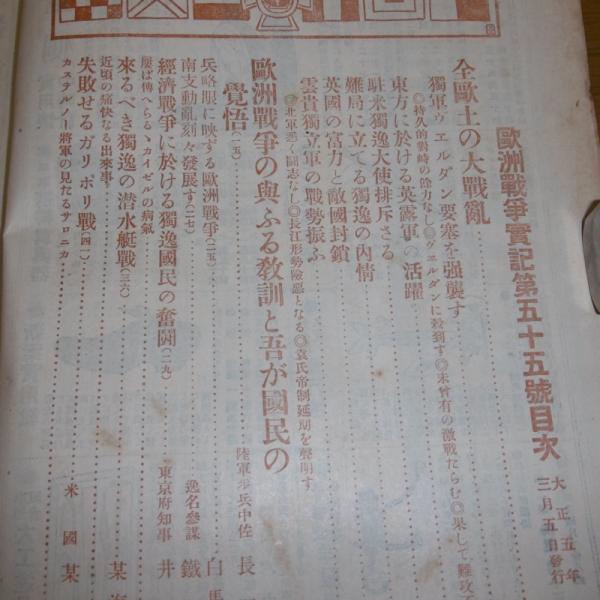 歐洲戰爭實記第五十五號目次
大正五年
三月五日發行
全歐土の大戰亂
獨軍ヴエルダン要塞を强襲す
◎持久的對峙の餘力なし◎ヴエルダンに殺到す◎未曾有の激戰たらむ◎果して難攻不
東方に於ける英露軍の活躍
駐米獨逸大使排斥さる
難局に立てる獨逸の內情
英國の富力と敵國封鎖
雲貴獨立軍の戰勢振ふ
◎北軍悉く鬪志なし◎長江形勢險惡となる◎袁氏帝制延期を聲明す
歐洲戰爭の與ふる敎訓と吾が國民の
覺悟(一五)
陸軍步兵中佐 長
兵略眼に映ずる歐洲戰爭(二五)
白馬
南支動亂刻々發展す(二七)
逸名參謀 鐵
經濟戰爭に於ける獨逸國民の奮鬪(二九)
東京府知事 井
屢ば傳へらるゝカイゼルの病氣
來るべき獨逸の潛水艇戰(三六)
某海
近頃の痛快なる出來事
失敗せるガリポリ戰(四一)
米國某
カステルノー將軍の見たるサロニカ